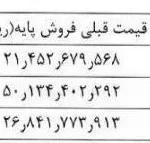 قیمت قبلی فروش پایه(ری
۲۱٫۴۵۲٫۶۷۹٫۵۶۸
۵۰٫۱۳۴٫۴۰۲٫۲۹۲
۲۶٫۸۴۱٫۷۷۳٫۹۱۳